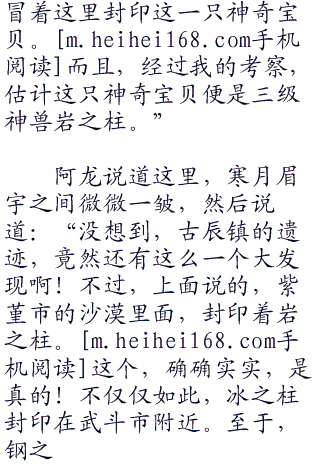 冒着这里封印这一只神奇宝
贝。[m.heihei168.com手机
阅读]而且，经过我的考察，
估计这只神奇宝贝便是三级
神兽岩之柱。”
阿龙说道这里，寒月眉
宇之间微微一皱，然后说
道：“没想到，古辰镇的遗
迹，竟然还有这么一个大发
现啊！不过，上面说的，紫
堇市的沙漠里面，封印着岩
之柱。[m.heihei168.com手
机阅读]这个，确确实实，是
真的！不仅仅如此，冰之柱
封印在武斗市附近。至于，
钢之